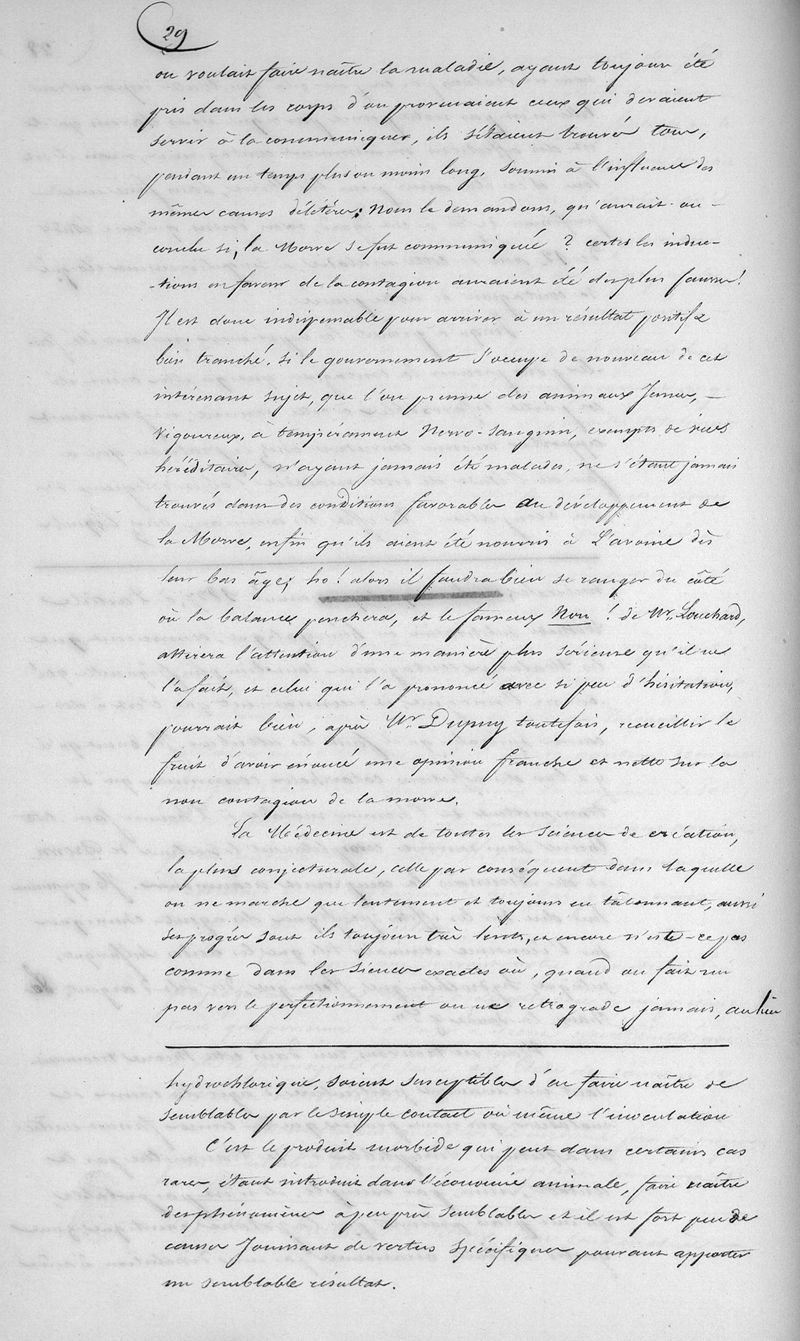 29
où voulait faire naître la maladie, ayant toujours été
pris dans les corps d'où provenaient ceux qui devaient
servir à la communiquer, ils s'étaient trouvés tous,
pendant un temps plus ou moins long, soumis à l'influence des
mêmes causes délétères; Nous le demandons, qu'aurait-on
conclu si, la Morve se fut communiquée ? certes les induc-
-tions en faveur de la contagion auraient été des plus fausses!
Il est donc indispensable pour arriver à un résultat positif &
bien tranché, si le gouvernement s'occupe de nouveau de cet
intéressant sujet, que l'on prenne des animaux Jeunes, -
vigoureux, à tempérament Nervo-Sanguin, exempts de vices
héréditaires, n'ayant jamais été malades, ne s'étant jamais
trouvés dans des conditions favorables au développement de
la Morve, enfin qu'ils aient été nourris à L'avoine dès
leur bas âge; ho! alors il faudra bien se ranger du côté
où la balance penchera, et le fameux Non ! de Mr. Louchard,
attirera l'attention d'une manière plus sérieuse qu'il ne
l'a fait, et celui qui l'a prononcé avec si peu d'hésitation,
pourrait bien, après Mr. Dupuy toutefois, recueillir le
fruit d'avoir énoncé une opinion franche et nette sur la
non contagion de la morve.
La Médecine est de toutes les sciences de création,
la plus conjecturale, celle par conséquent dans laquelle
on ne marche que lentement et toujours en tâtonnant, aussi
ses progrès sont ils toujours très lents, et encore n'est-ce pas
comme dans les siences exactes où, quand on fait un
pas vers le perfectionnement on ne retrograde jamais, au lieu
hydrochlorique, soient susceptibles d'en faire naître de
semblables par le simple contact où même l'inoculation
C'est le produit morbide qui peut dans certains cas
rares, étant introduit dans l'économie animale, faire naître
des phénomènes à peu près semblables et il est fort peu de
causes Jouissant de vertus spécifiques pouvant apporter
un semblable résultat.